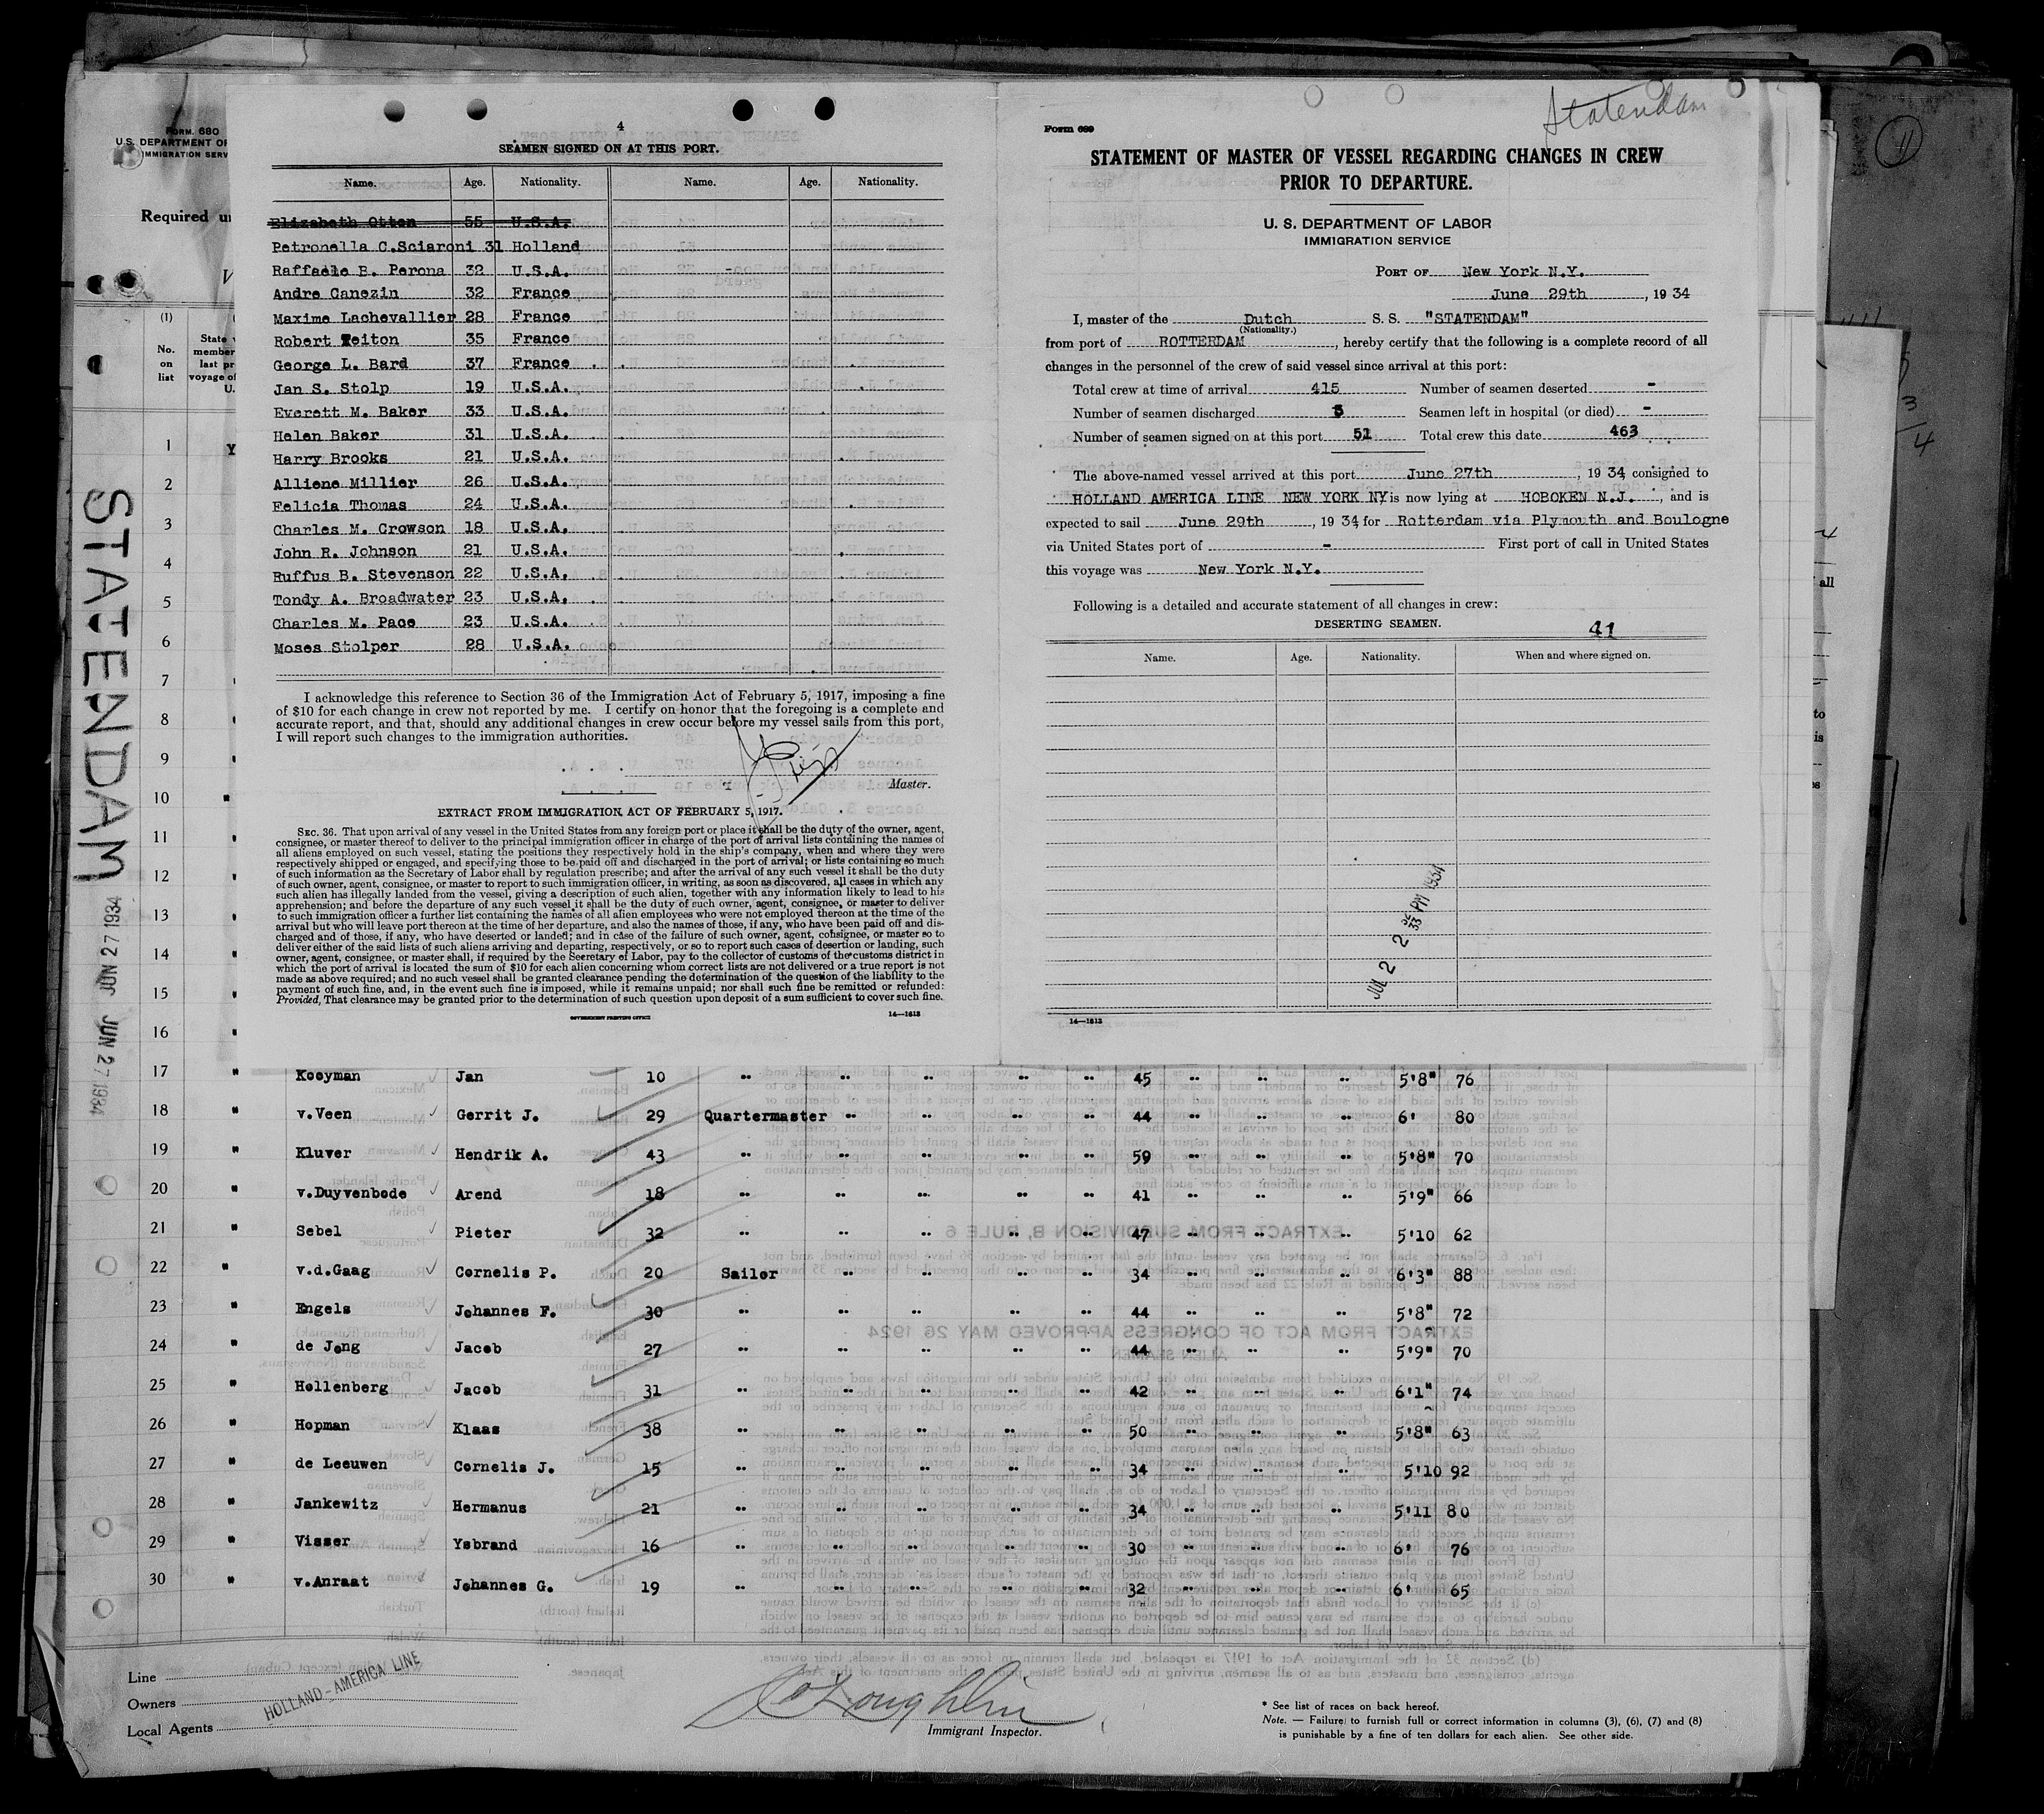 FORM. 680
U.S. DEPARTMENT OF
IMMIGRATION SERV
Required
(1)
No. on list
State
member
last pr
voyage of
U.
STATENDAM
JUN 27 1934
JUN 27 1934
4
SEAMEN SIGNED ON AT THIS PORT.
Name. Age. Nationality. Name. Age. Nationality.
Elizabeth Otten 55 U.S.A.
Petronella C.Sciaroni 31 Holland
Raffaele B. Perona 32 U.S.A.
Andre Canezin 32 France
Maxime Lachevallier 28 France
Robert Teiton 35 France
George L. Bard 37 France
Jan S. Stolp 19 U.S.A.
Everett M. Baker 33 U.S.A.
Helen Baker 31 U.S.A.
Harry Brooks 21 U.S.A.
Alliene Millier 26 U.S.A.
Felicia Thomas 24 U.S.A.
Charles M. Crowson 18 U.S.A.
John R. Johnson 21 U.S.A.
Ruffus B. Stevenson 22 U.S.A.
Tondy A. Broadwater 23 U.S.A.
Charles M. Pace 23 U.S.A.
Moses Stolper 28 U.S.A.
I acknowledge this reference to Section 36 of the Immigration Act of February 5, 1917, imposing a fine
of $10 for each change in crew not reported by me. I certify on honor that the foregoing is a complete and
accurate report, and that, should any additional changes in crew occur before my vessel sails from this port,
I will report such changes to the immigration authorities.
Master.
EXTRACT FROM IMMIGRATION ACT OF FEBRUARY 5, 1917.
SEC. 36. That upon arrival of any vessel in the United States from any foreign port or place it shall be the duty of the owner, agent,
consignee, or master thereof to deliver to the principal immigration officer in charge of the port of arrival lists containing the names of
all aliens employed on such vessel, stating the positions they respectively hold in the ship's company, when and where they were
respectively shipped or engaged, and specifying those to be paid off and discharged in the port of arrival; or lists containing so much
of such information as the Secretary of Labor shall by regulation prescribe; and after the arrival of any such vessel it shall be the duty
of such owner, agent, consignee, or master to report to such immigration officer, in writing, as soon as discovered, all cases in which any
such alien has illegally landed from the vessel, giving a description of such alien, together with any information likely to lead to his
apprehension; and before the departure of any such vessel it shall be the duty of such owner, agent, consignee, or master to deliver
to such immigration officer a further list containing the names of all alien employees who were not employed thereon at the time of the
arrival but who will leave port thereon at the time of her departure, and also the names of those, if any, who have been paid off and dis-
charged and of those, if any, who have deserted or landed; and in case of the failure of such owner, agent, consignee, or master so to
deliver either of the said lists of such aliens arriving and departing, respectively, or so to report such cases of desertion or landing, such
owner, agent, consignee, or master shall, if required by the Secretary of Labor, pay to the collector of customs of the customs district in
which the port of arrival is located the sum of $10 for each alien concerning whom correct lists are not delivered or a true report is not
made as above required; and no such vessel shall be granted clearance pending the determination of the question of the liability to the
payment of such fine, and, in the event such fine is imposed, while it remains unpaid; nor shall such fine be remitted or refunded:
Provided, That clearance may be granted prior to the determination of such question upon deposit of a sum sufficient to cover such fine.
GOVERNMENT PRINTING OFFICE 14—1613
Statendam
Form 689
STATEMENT OF MASTER OF VESSEL REGARDING CHANGES IN CREW
PRIOR TO DEPARTURE.
U. S. DEPARTMENT OF LABOR
IMMIGRATION SERVICE
PORT OF New York N.Y.
June 29th, 1934
I, master of the Dutch S. S. "STATENDAM"
(Nationality.)
from port of ROTTERDAM, hereby certify that the following is a complete record of all
changes in the personnel of the crew of said vessel since arrival at this port:
Total crew at time of arrival 415 Number of seamen deserted -
Number of seamen discharged 3 Seamen left in hospital (or died) -
Number of seamen signed on at this port 51 Total crew this date 463
The above-named vessel arrived at this port June 27th, 1934, consigned to
HOLLAND AMERICA LINE NEW YORK NY is now lying at HOBOKEN N.J., and is
expected to sail June 29th, 1934 for Rotterdam via Plymouth and Boulogne
via United States port of - First port of call in United States
this voyage was New York N.Y.
Following is a detailed and accurate statement of all changes in crew:
DESERTING SEAMEN. 41
Name. Age. Nationality. When and where signed on.
JUL 2 2 33 PM 1934
14—1613
11
1
2
3
4
5
6
7
8
9
10 "
11 "
12 "
13 "
14 "
15 "
16 "
17 " Kooyman Jan 10 " " " " " 45 " " " 5'8" 76
18 " v.Veen Gerrit J. 29 Quartermaster " " " " 44 " " " 6' 80
19 " Kluver Hendrik A. 43 " " " " " 59 " " " 5'8" 70
20 " v.Duyvenbode Arend 18 " " " " " 41 " " " 5'9" 66
21 " Sebel Pieter 32 " " " " " 47 " " " 5'10 62
22 " v.d.Gaag Cornelis P. 20 Sailor " " " " 34 " " " 6'3" 88
23 " Engels Johannes F. 30 " " " " " 44 " " " 5'8" 72
24 " de Jong Jacob 27 " " " " " 44 " " " 5'9" 70
25 " Hollenberg Jacob 31 " " " " " 42 " " " 6'1" 74
26 " Hopman Klaas 38 " " " " " 50 " " " 5'8" 63
27 " de Leeuwen Cornelis J. 15 " " " " " 34 " " " 5'10 92
28 " Jankewitz Hermanus 21 " " " " " 34 " " " 5'11 80
29 " Visser Ysbrand 16 " " " " " 30 " " " 6' 76
30 " v.Anraat Johannes G. 19 " " " " " 32 " " " 6' 65
Line
Owners HOLLAND-AMERICA LINE
Local Agents
Immigrant Inspector.
* See list of races on back hereof.
Note. — Failure to furnish full or correct information in columns (3), (6), (7) and (8)
is punishable by a fine of ten dollars for each alien. See other side.